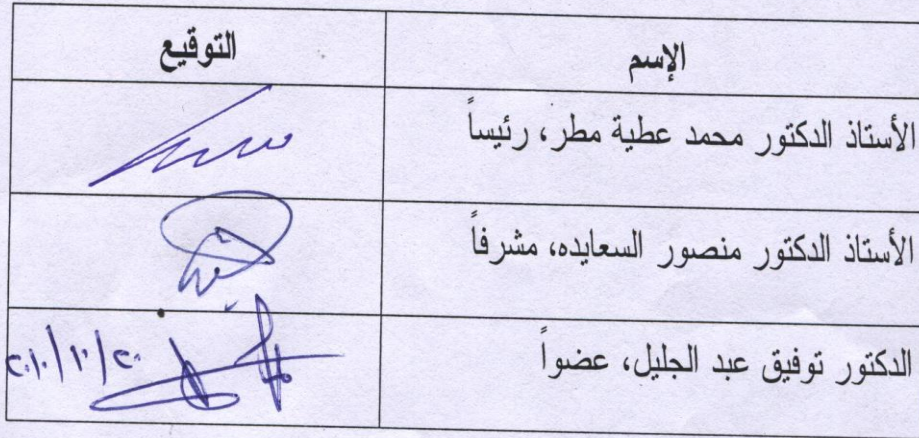 الإسم التوقيع
الأستاذ الدكتور محمد عطية مطر، رئيساً
الأستاذ الدكتور منصور السعايده، مشرفاً
الدكتور توفيق عبد الجليل، عضواً